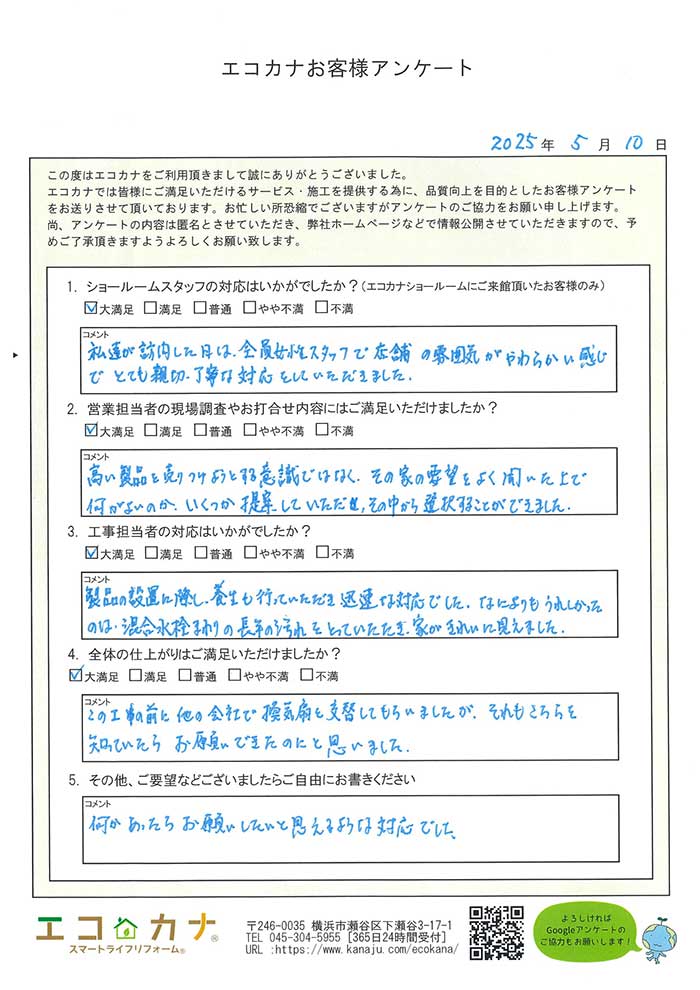 エコカナお客様アンケート
2025年 5月 10日
この度はエコカナをご利用頂きまして誠にありがとうございました。
エコカナでは皆様にご満足いただけるサービス・施工を提供する為に、品質向上を目的としたお客様アンケート
をお送りさせて頂いております。お忙しい所恐縮でございますがアンケートのご協力をお願い申し上げます。
尚、アンケートの内容は匿名とさせていただき、弊社ホームページなどで情報公開させていただきますので、予
めご了承頂きますようよろしくお願い致します。
1. ショールームスタッフの対応はいかがでしたか？（エコカナショールームにご来館頂いたお客様のみ）
☑大満足 □満足 □普通 □やや不満 □不満
コメント
私達が訪内した日は、全員女性スタッフで店舗の雰囲気がやわらかい感じ
でとても親切、丁寧な対応をしていただきました。
2. 営業担当者の現場調査やお打合せ内容にはご満足いただけましたか？
☑大満足 □満足 □普通 □やや不満 □不満
コメント
高い製品を売りつけようとする意識ではなく、その家の要望をよく聞いた上で
何がよいのか、いくつか提案していただき、その中から選択することができました。
3. 工事担当者の対応はいかがでしたか？
☑大満足 □満足 □普通 □やや不満 □不満
コメント
製品の設置に際し、養生も行っていただき迅速な対応でした。なによりもうれしかった
のは、混合水栓まわりの長年の汚れをとっていただき、家がきれいに見えました。
4. 全体の仕上がりはご満足いただけましたか？
☑大満足 □満足 □普通 □やや不満 □不満
コメント
この工事の前に他の会社で換気扇を交替してもらいましたが、それもこちらを
知っていたらお願いできたのにと思いました。
5. その他、ご要望などございましたらご自由にお書きください
コメント
何かあったらお願いしたいと思えるような対応でした。
エコカナ®
スマートライフリフォーム®
〒246-0035 横浜市瀬谷区下瀬谷3-17-1
TEL 045-304-5955 [365日24時間受付]
URL :https://www.kanaju.com/ecokana/
よろしければ
Googleアンケートの
ご協力もお願いします！